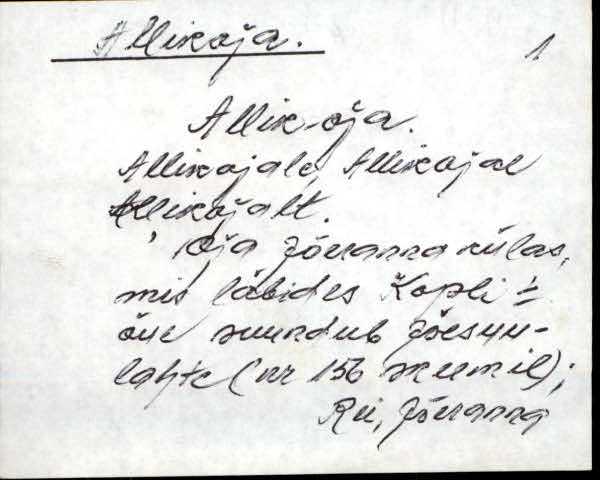 Allikoja.
1
Allik-oja.
Allikojale, Allikojal
Allikojalt.
Oja Jõeranna külas,
mis läbides Kopli
õue suundub Jõesuu-
lahte (nr 156 skeemil);
Rei, Jõeranna